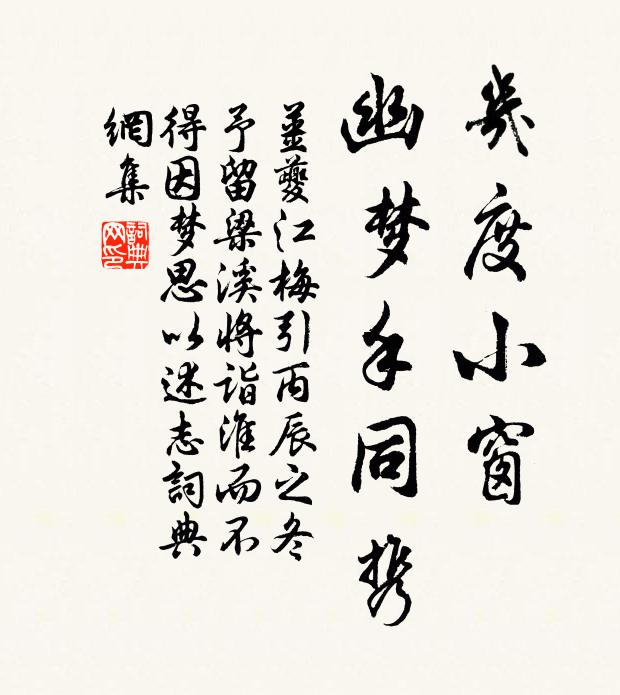 幾度小窗
幽梦手同携
薑夔江梅引丙辰之冬
予留梁溪将詣淮而不
得因梦思以述志詞典
網集
詞典网印